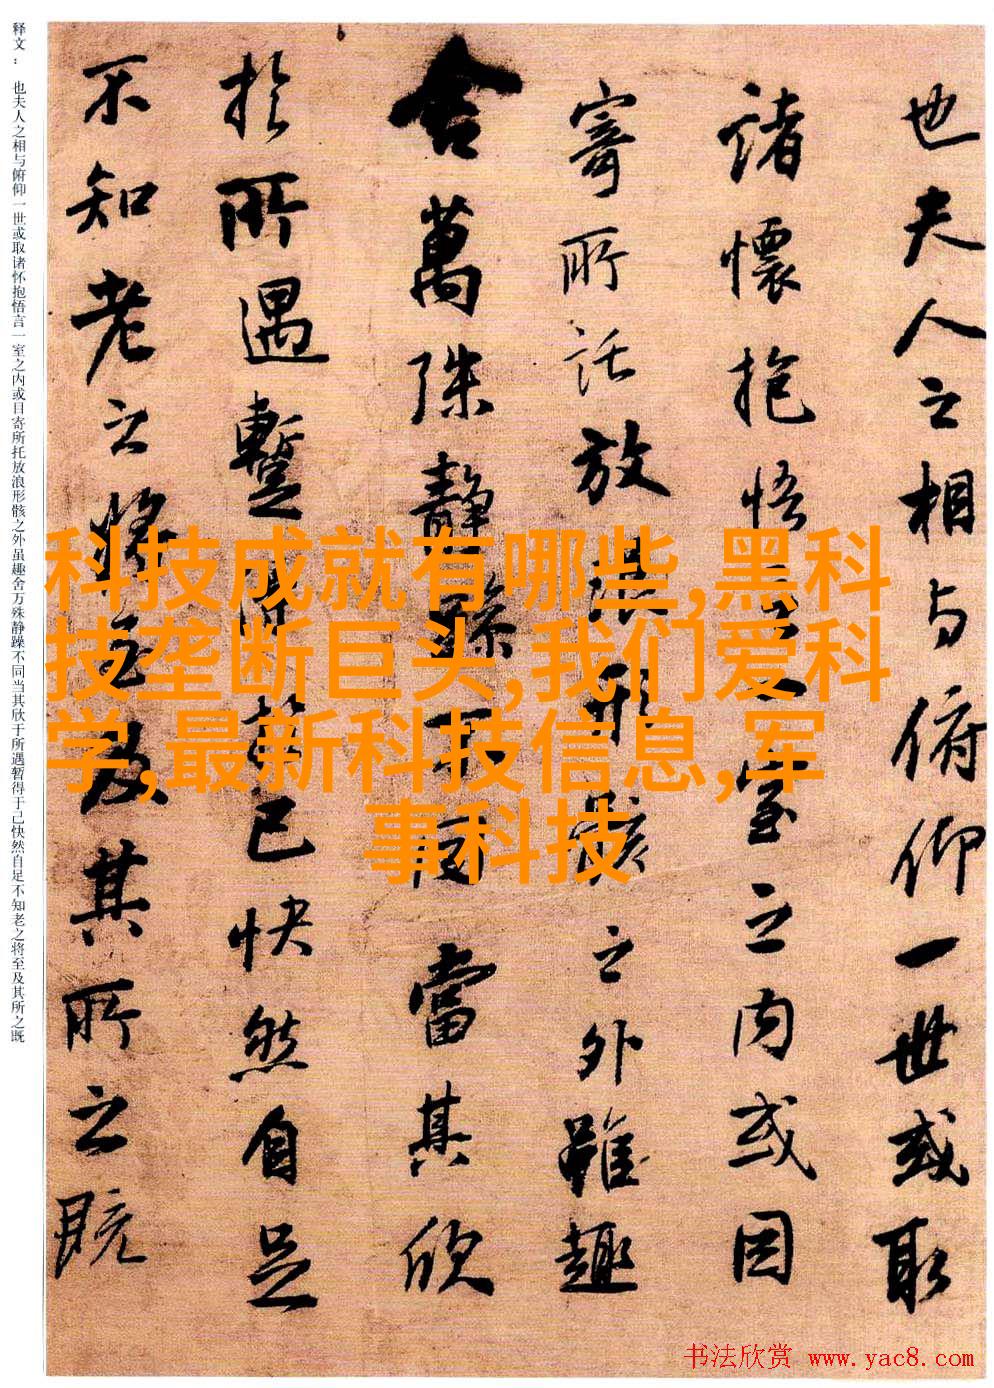 也夫人之相与俯仰一世或取
諸懷抱悟言一室之内或因
寄所託放浪形骸之外雖趣
舍萬殊静躁不同當其欣
於所遇蹔得於己快然自足
不知老之将至及其所之既
释文：也夫人之相与俯仰一世或取诸怀抱悟言一室之内或目寄所托放浪形骸之外虽趣舍万殊静躁不同当其欣于所遇暂得于己快然自足不知老之将至及其所之既
科技成就有哪些,黑科
技垄断巨头,我们爱科
学,最新科技信息,军
事科技
书法欣赏 www.yac8.com